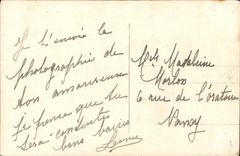 Je t'envoie la
photographie de
ton amoureuse
je pense que tu
sera contente
bons baisers
Mlle Madeleine
6 rue de l'oratoire
Nancy